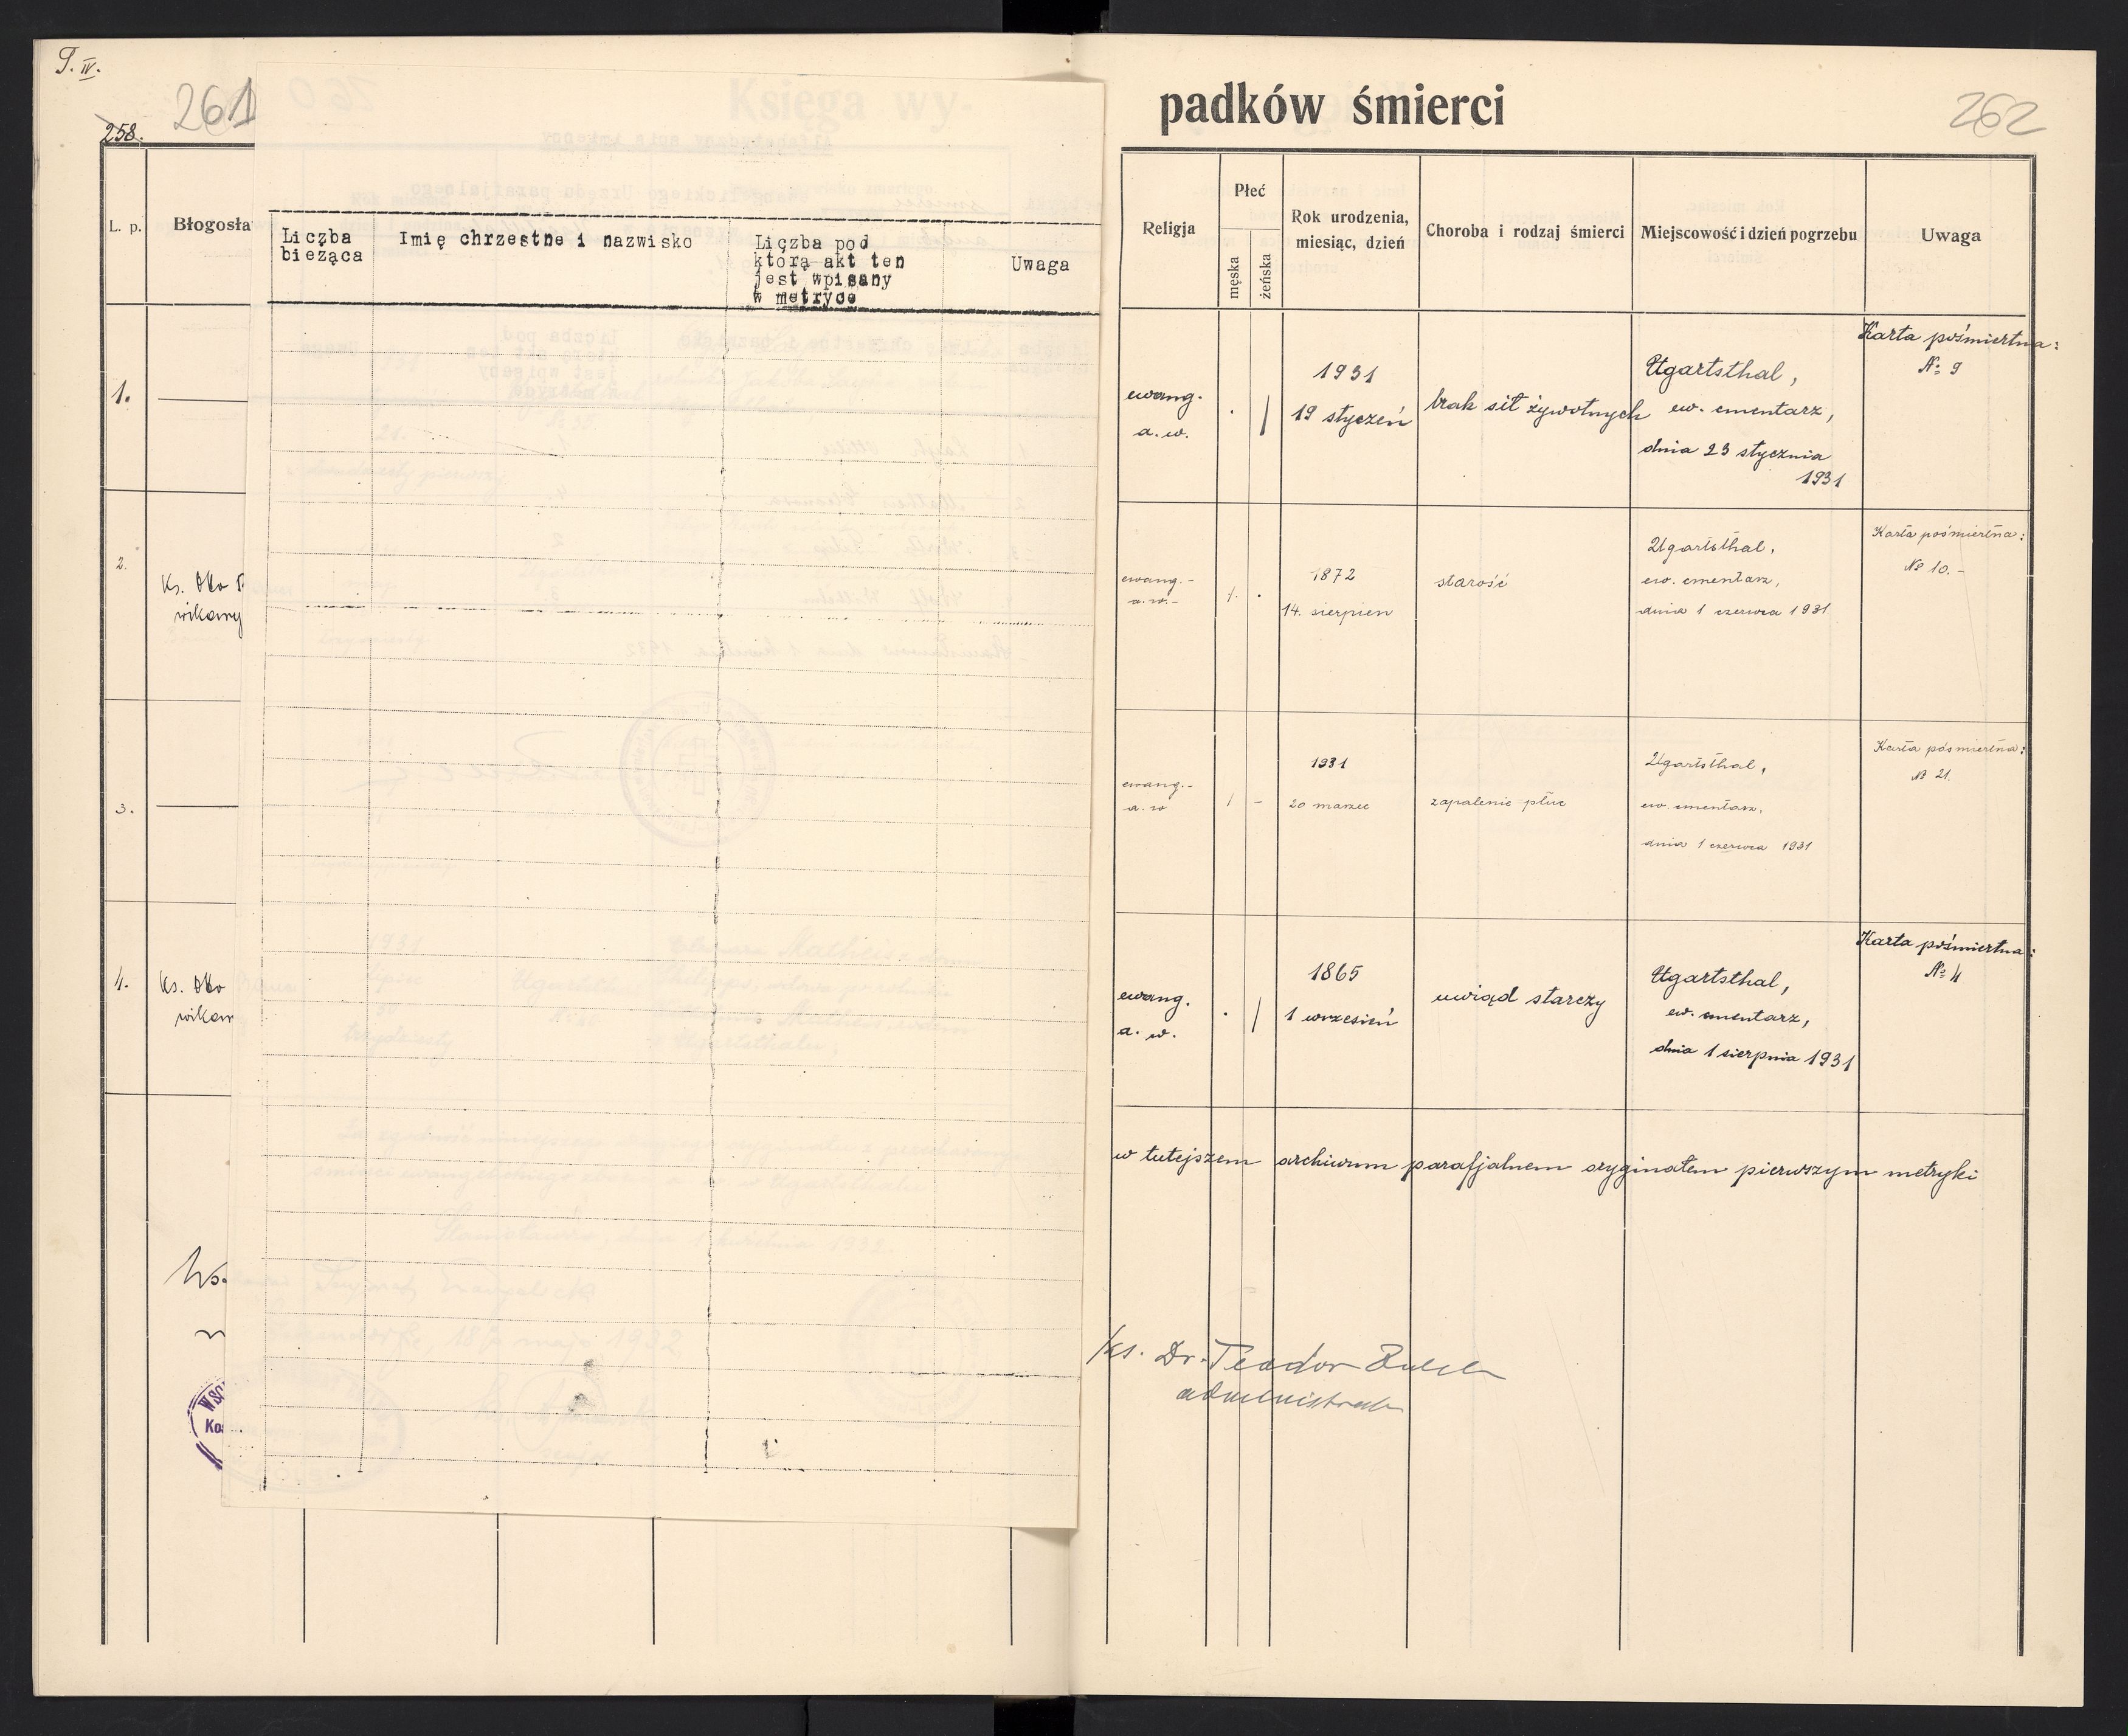 T. IV.
261
258.
L. p.
Błogosła
1.
2.
Ks.
wikary
3.
4.
Ks.
wikar
Ks.
Księga wy-
Liczba
bieżąca
Imię chrzestne i nazwisko
Liczba pod
którą akt ten
jest wpisany
w metryce
Uwaga
padków śmierci
262
Religja
Płeć
męska
żeńska
Rok urodzenia,
miesiąc, dzień
Choroba i rodzaj śmierci
Miejscowość i dzień pogrzebu
Uwaga
ewang.
a. w.
1931
19 styczeń
brak sił żywotnych
Ugartsthal,
ew. cmentarz,
dnia 23 stycznia
1931
Karta pośmiertna:
№ 9
ewang.-
a. w.-
1.
1872
14. sierpien
starość
Ugartsthal,
ew. cmentarz,
dnia 1 czerwca 1931
Karta pośmiertna:
№ 10.-
ewang.-
a. w
1
-
1931
20 marzec
zapalenie płuc
Ugartsthal,
ew. cmentarz.
dnia 1 czerwca 1931
Karta pośmiertna:
№ 21.
ewang.
a. w.
1865
1 wrzesień
uwiąd starczy
Ugartsthal,
ew. cmentarz,
dnia 1 sierpnia 1931
Karta pośmiertna:
№ 4
w tutejszem archiwum parafjalnem oryginałem pierwszym metryki
ks. Dr. Teodor
administrator